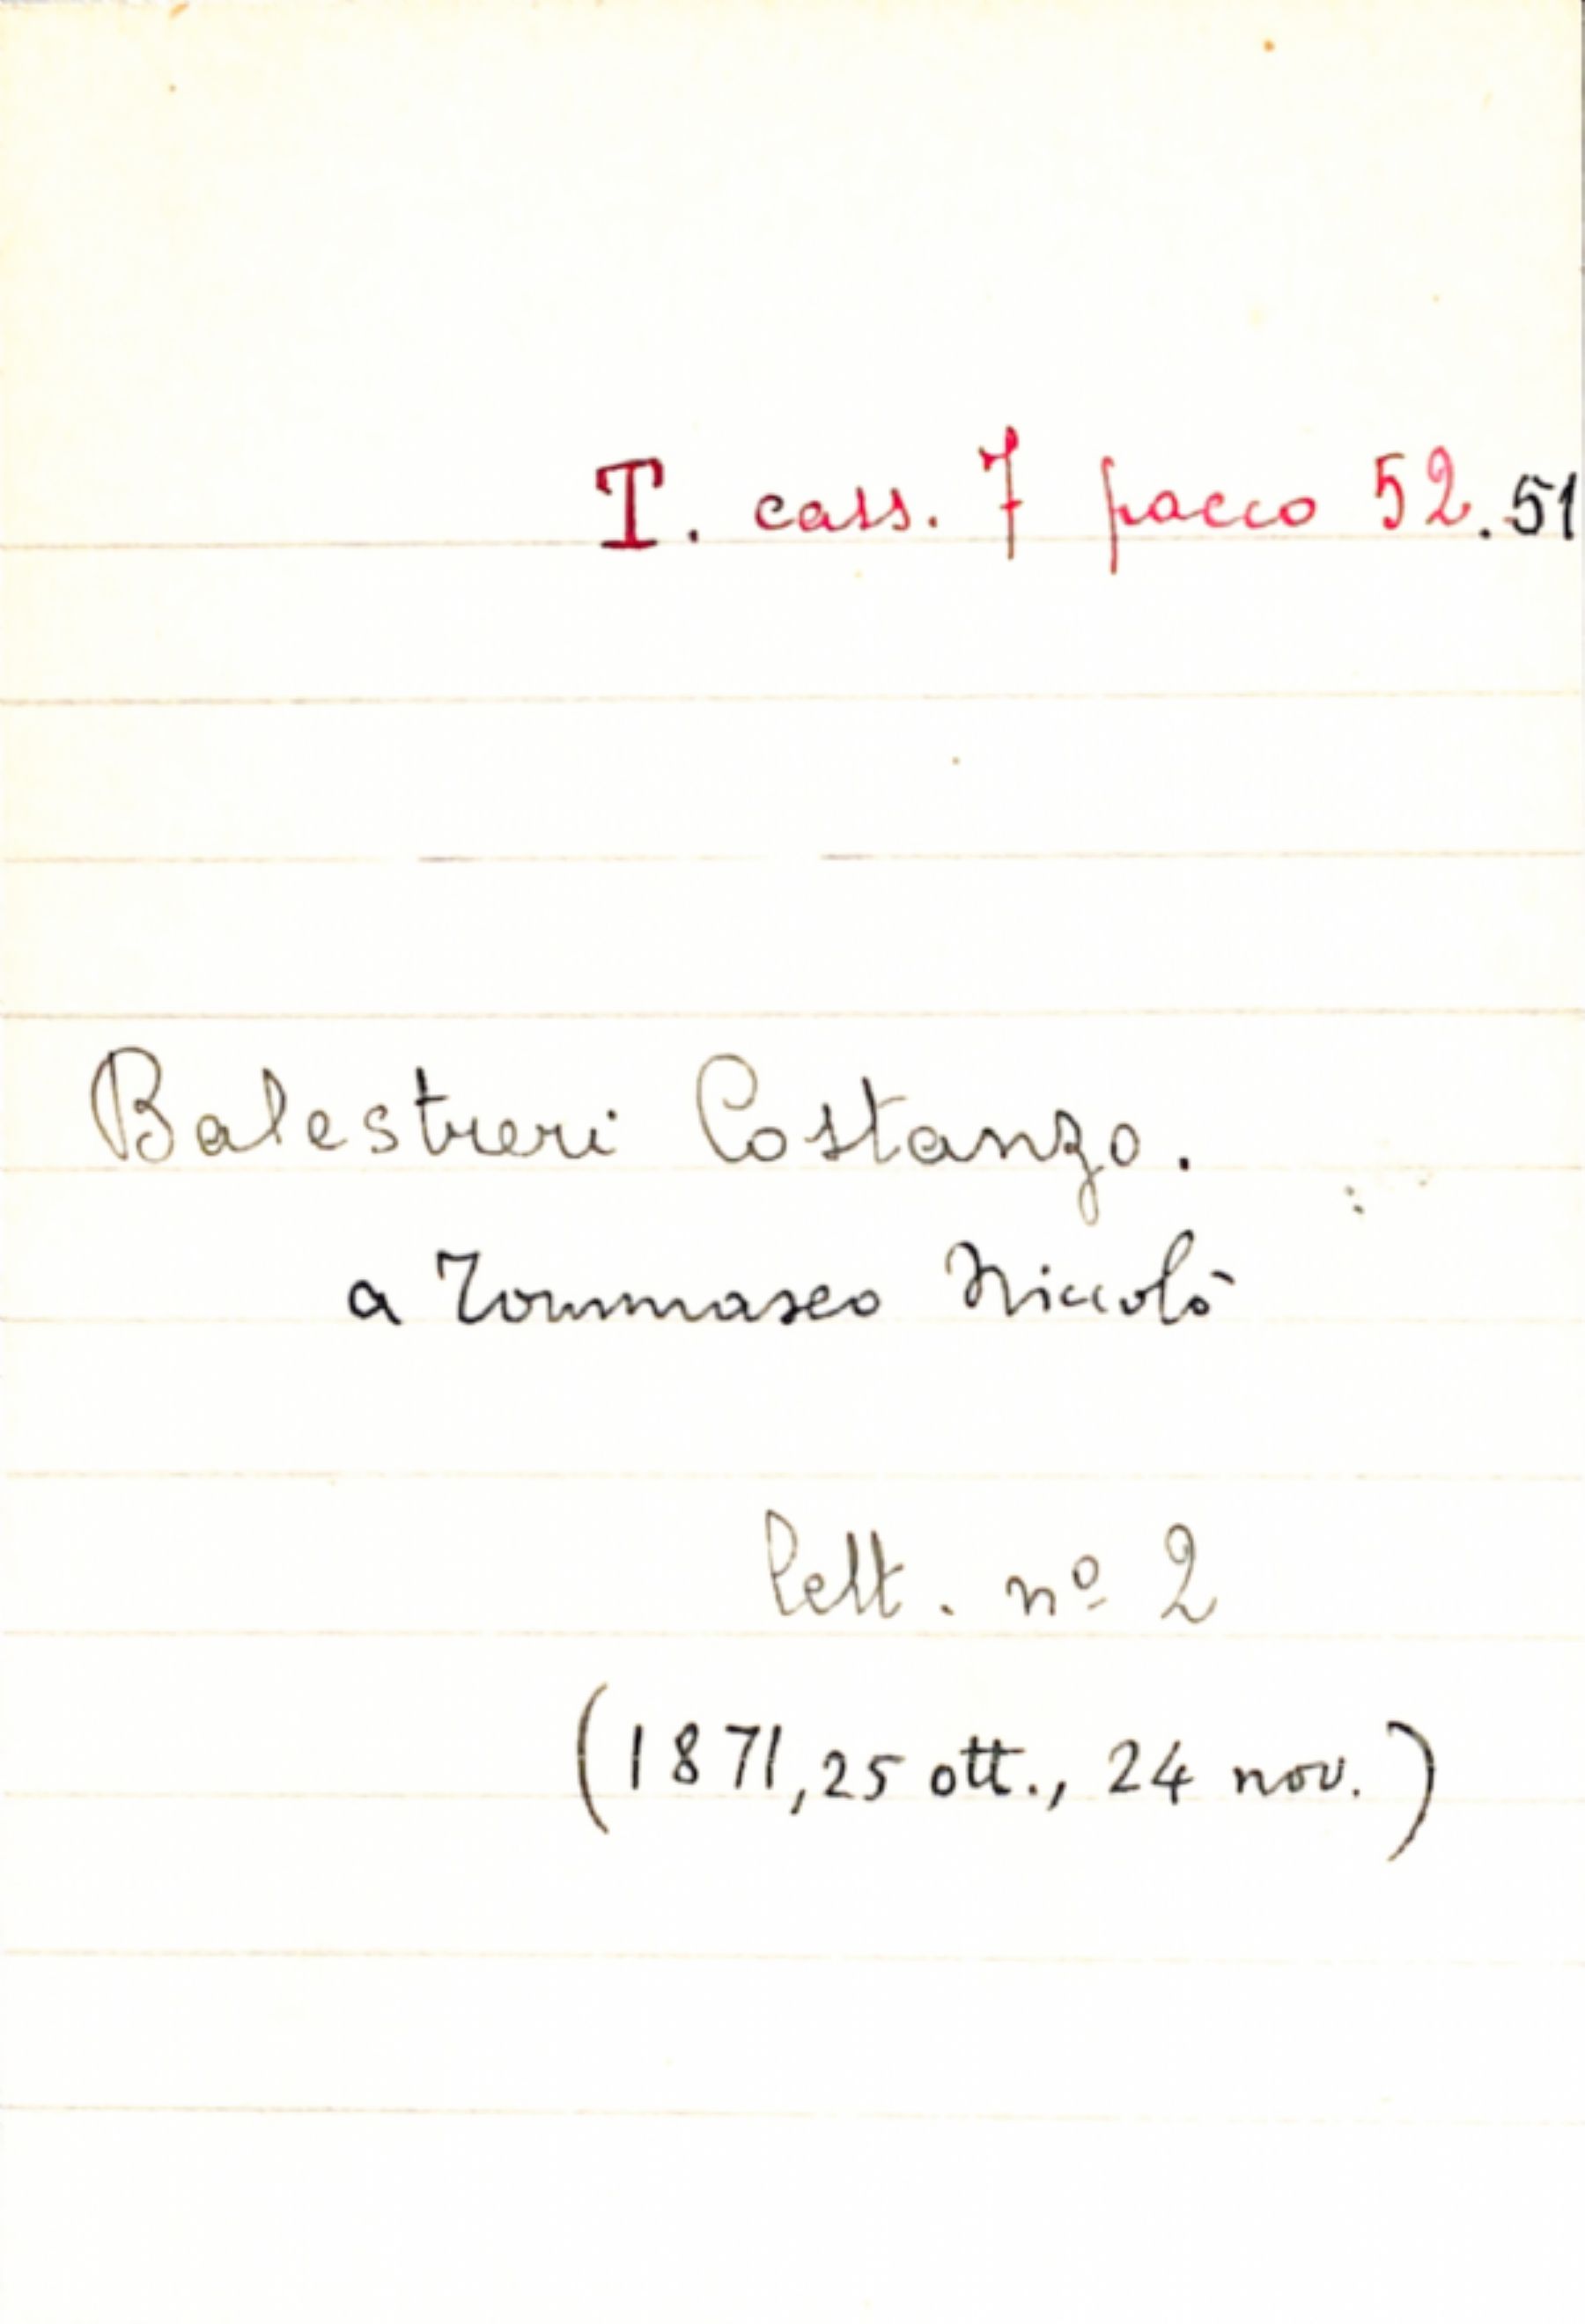 T. cass. 7 pacco 52.51
Balestrieri Costanzo.
a Tommaseo Niccolò
lett. nº 2
(1871, 25 ott., 24 nov.)